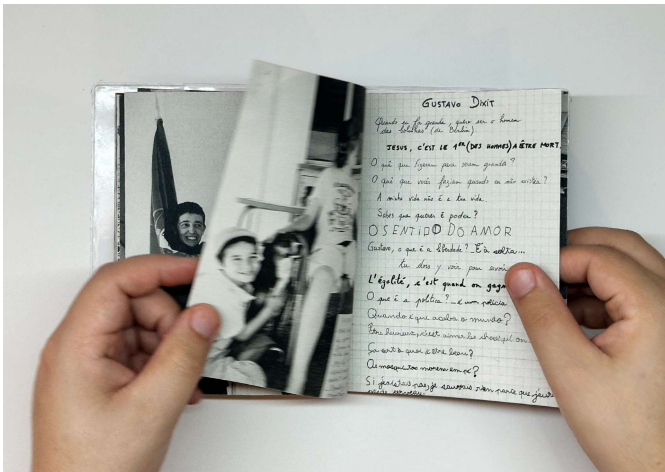 GUSTAVO DIXIT
Quando eu for grande, quero ser o homem
das bolinhas (de Berlim).
JESUS, C'EST LE 1er (DES HOMMES) A ÊTRE MORT.
O quê que fizeram para serem grandes?
O quê que vocês faziam quando eu não existia?
A minha vida não é a tua vida.
Sabes que querer é poder?
O SENTIDO DO AMOR
Gustavo, o que é a liberdade? _É à solta...
tu dois y voir pour
L'égalité, c'est quand on gagne
O que é a política? _é um polícia
Quando é que acaba o mundo?
Être heureux, c'est aimer les choses qu'on
Ça sert à quoi d'être beau?
Os mosquitos morrem em pé?
Si j'étais pas, je saurais rien parce que j'aurais